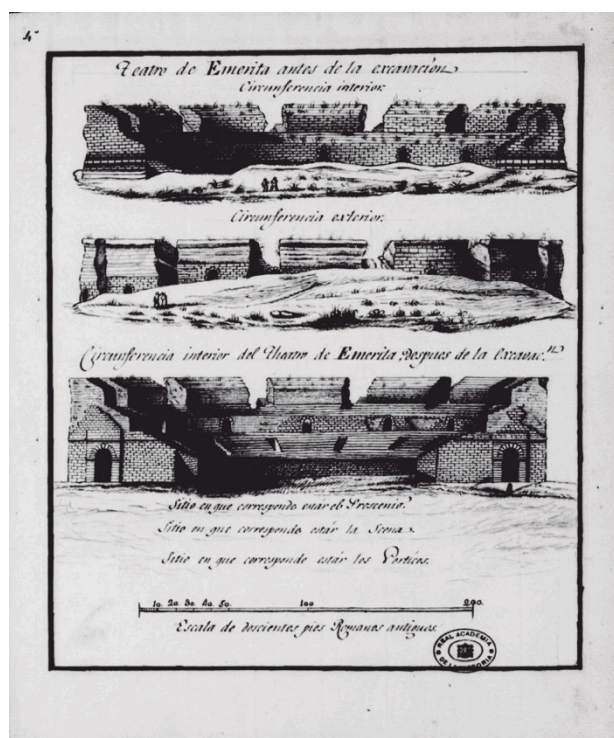 4
Teatro de Emerita antes de la excavación
Circunferencia interior.
Circunferencia exterior.
Circunferencia interior del Theatro de Emerita, despues de la Excavac.n
Sitio en que corresponde estar el Proscenio.
Sitio en que corresponde estár la Scena.
Sitio en que corresponde estár los Porticos.
10. 20. 30. 40. 50. 100 200.
Escala de doscientos pies Romanos antiguos.
REAL ACADEMIA
DE LA HISTORIA